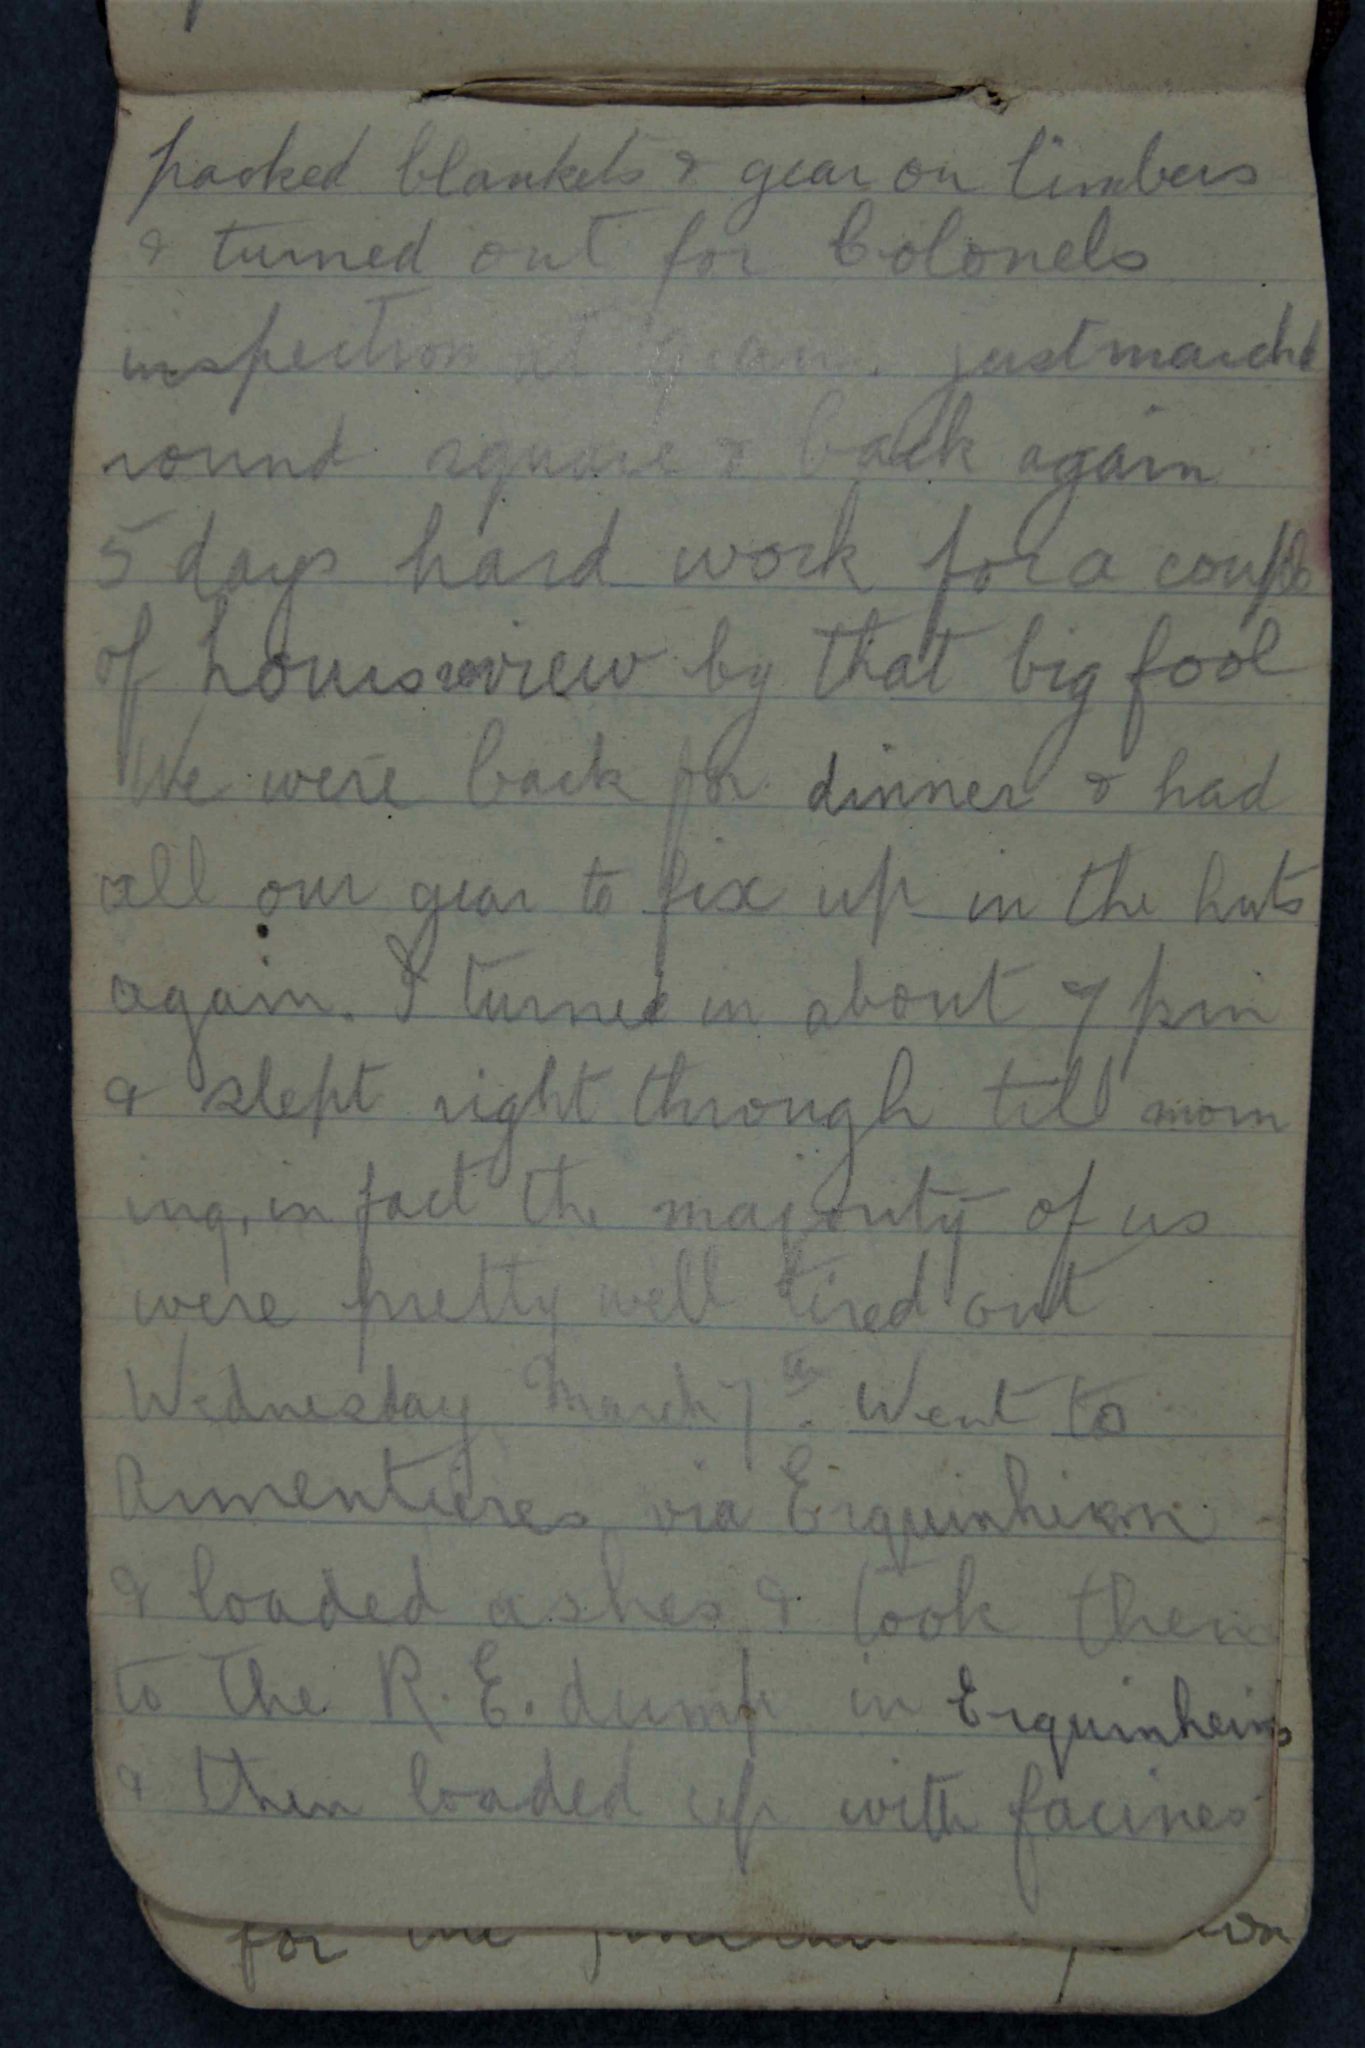 packed blankets & gear on limbers
& turned out for Colonels
inspection at 9 am. just marchd
round square & back again
5 days hard work for a couple
of hours review by that big fool
We were back for dinner & had
all our gear to fix up in the huts
again. I turned in about 7 pm
& slept right through till morn
ing, in fact the majority of us
were pretty well tired out
Wednesday March 7th. Went to
Armentieres via Erquinhem
& loaded ashes & took them
to the R.E. dump in Erquinhem
& then loaded up with facines
for the